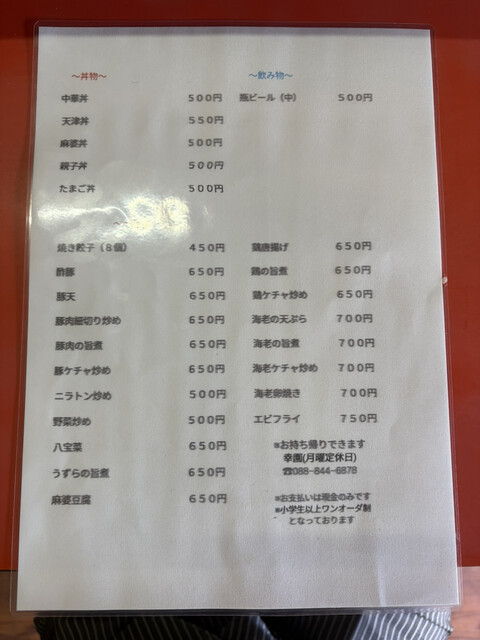 ～丼物～
中華丼 ５００円
天津丼 ５５０円
麻婆丼 ５００円
親子丼 ５００円
たまご丼 ５００円
～飲み物～
瓶ビール（中） ５００円
焼き餃子（８個） ４５０円
酢豚 ６５０円
豚天 ６５０円
豚肉細切り炒め ６５０円
豚肉の旨煮 ６５０円
豚ケチャ炒め ６５０円
ニラトン炒め ５００円
野菜炒め ５００円
八宝菜 ６５０円
うずらの旨煮 ６５０円
麻婆豆腐 ６５０円
鶏唐揚げ ６５０円
鶏の旨煮 ６５０円
鶏ケチャ炒め ６５０円
海老の天ぷら ７００円
海老の旨煮 ７００円
海老ケチャ炒め ７００円
海老卵焼き ７００円
エビフライ ７５０円
※お持ち帰りできます
幸園(月曜定休日)
☎088-844-6878
※お支払いは現金のみです
※小学生以上ワンオーダ制
となっております